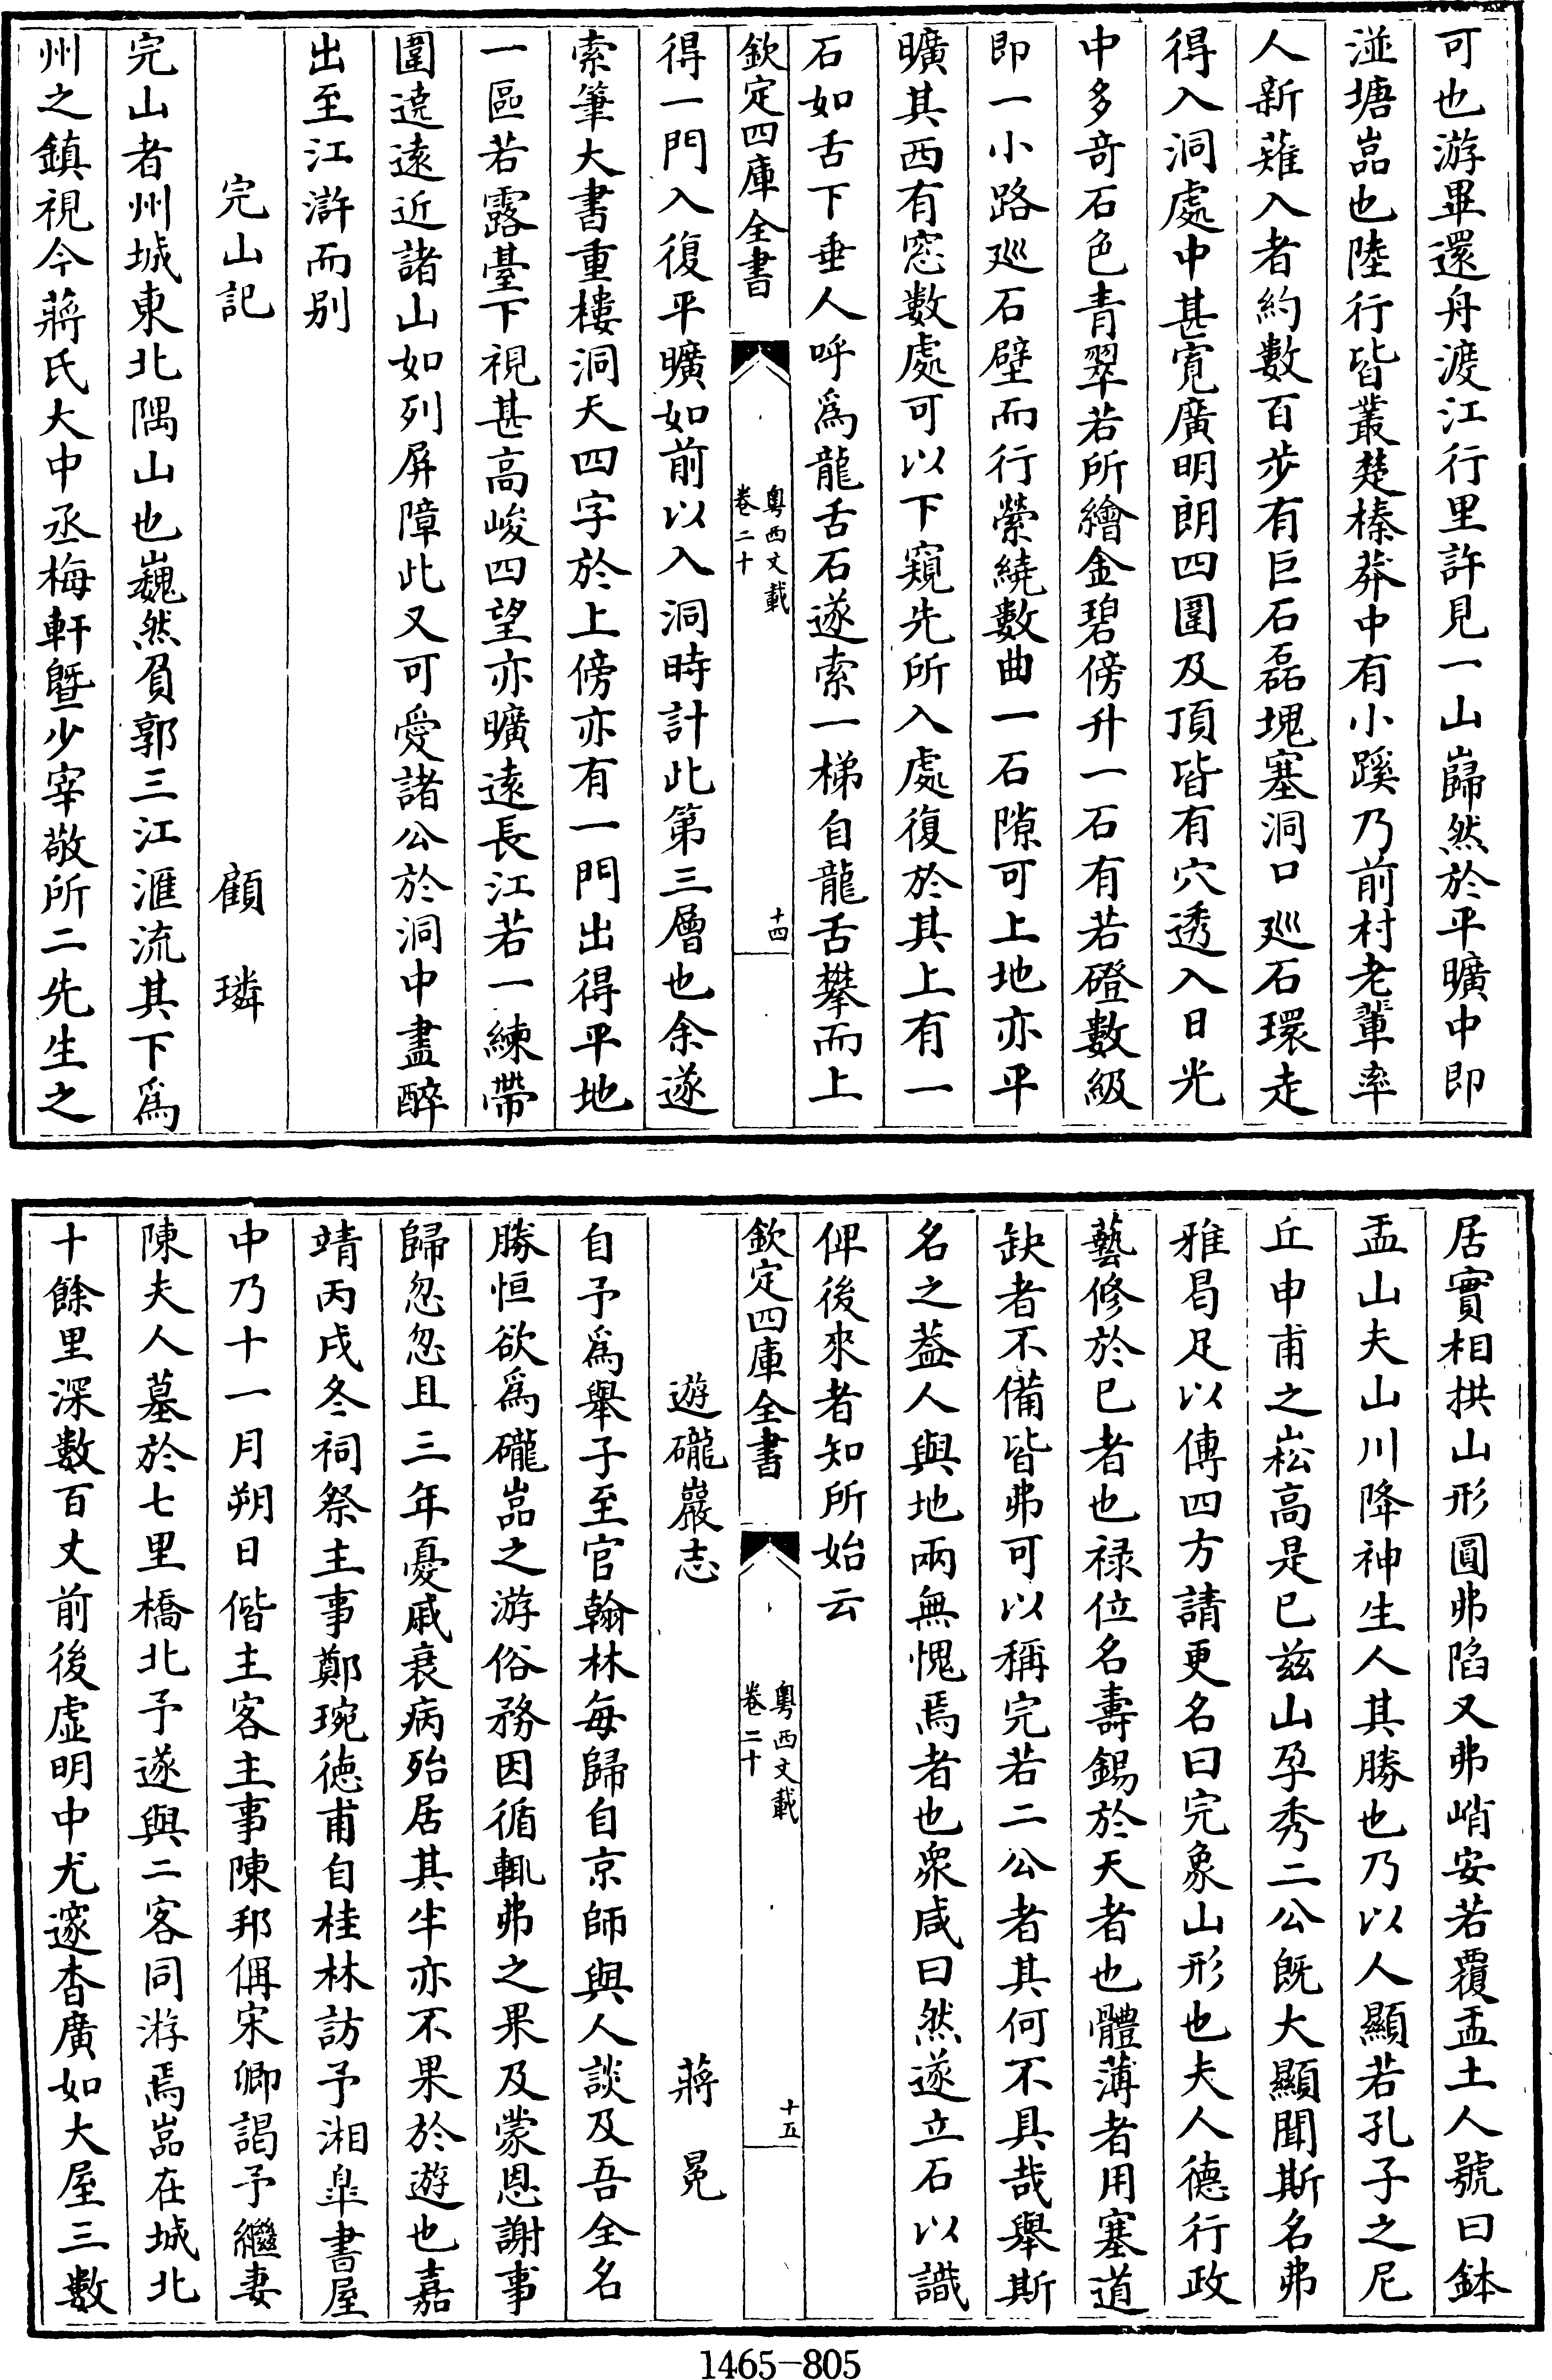 可也游畢還舟渡江行里許見一山巋然於平曠中即
湴塘嵓也陸行皆叢楚榛莽中有小蹊乃前村老輩率
人新薙入者約數百步有巨石磊塊塞洞口廵石環走
得入洞處中甚寛廣明朗四圍及頂皆有穴透入日光
中多竒石色青翠若所繪金碧傍升一石有若磴數級
即一小路廵石壁而行縈繞數曲一石隙可上地亦平
曠其西有窓數處可以下窺先所入處復於其上有一
石如舌下垂人呼為龍舌石遂索一梯自龍舌攀而上
欽定四庫全書
粤西文載
卷二十
十四
得一門入復平曠如前以入洞時計此第三層也余遂
索筆大書重樓洞天四字於上傍亦有一門出得平地
一區若露臺下視甚高峻四望亦曠遠長江若一練帶
圍遶遠近諸山如列屏障此又可愛諸公於洞中盡醉
出至江滸而别
完山記
顧璘
完山者州城東北隅山也巍然負郭三江滙流其下為
州之鎮視今蔣氏大中丞梅軒曁少宰敬所二先生之
居實相拱山形圓弗陷又弗峭安若覆盂土人號曰鉢
盂山夫山川降神生人其勝也乃以人顯若孔子之尼
丘申甫之崧高是已兹山孕秀二公既大顯聞斯名弗
雅曷足以傳四方請更名曰完象山形也夫人德行政
藝修於已者也禄位名壽錫於天者也體薄者用塞道
缺者不備皆弗可以稱完若二公者其何不具哉舉斯
名之葢人與地兩無愧焉者也衆咸曰然遂立石以識
俾後來者知所始云
欽定四庫全書
粤西文載
卷二十
十五
遊礲巖志
蔣冕
自予為舉子至官翰林每歸自京師與人談及吾全名
勝恒欲為礲嵓之游俗務因循輒弗之果及蒙恩謝事
歸忽忽且三年憂戚衰病殆居其半亦不果於遊也嘉
靖丙戌冬祠祭主事鄭琬徳甫自桂林訪予湘臯書屋
中乃十一月朔日偕主客主事陳邦偁宋卿謁予繼妻
陳夫人墓於七里橋北予遂與二客同游焉嵓在城北
十餘里深數百丈前後虚明中尤邃杳廣如大屋三數
1465-805